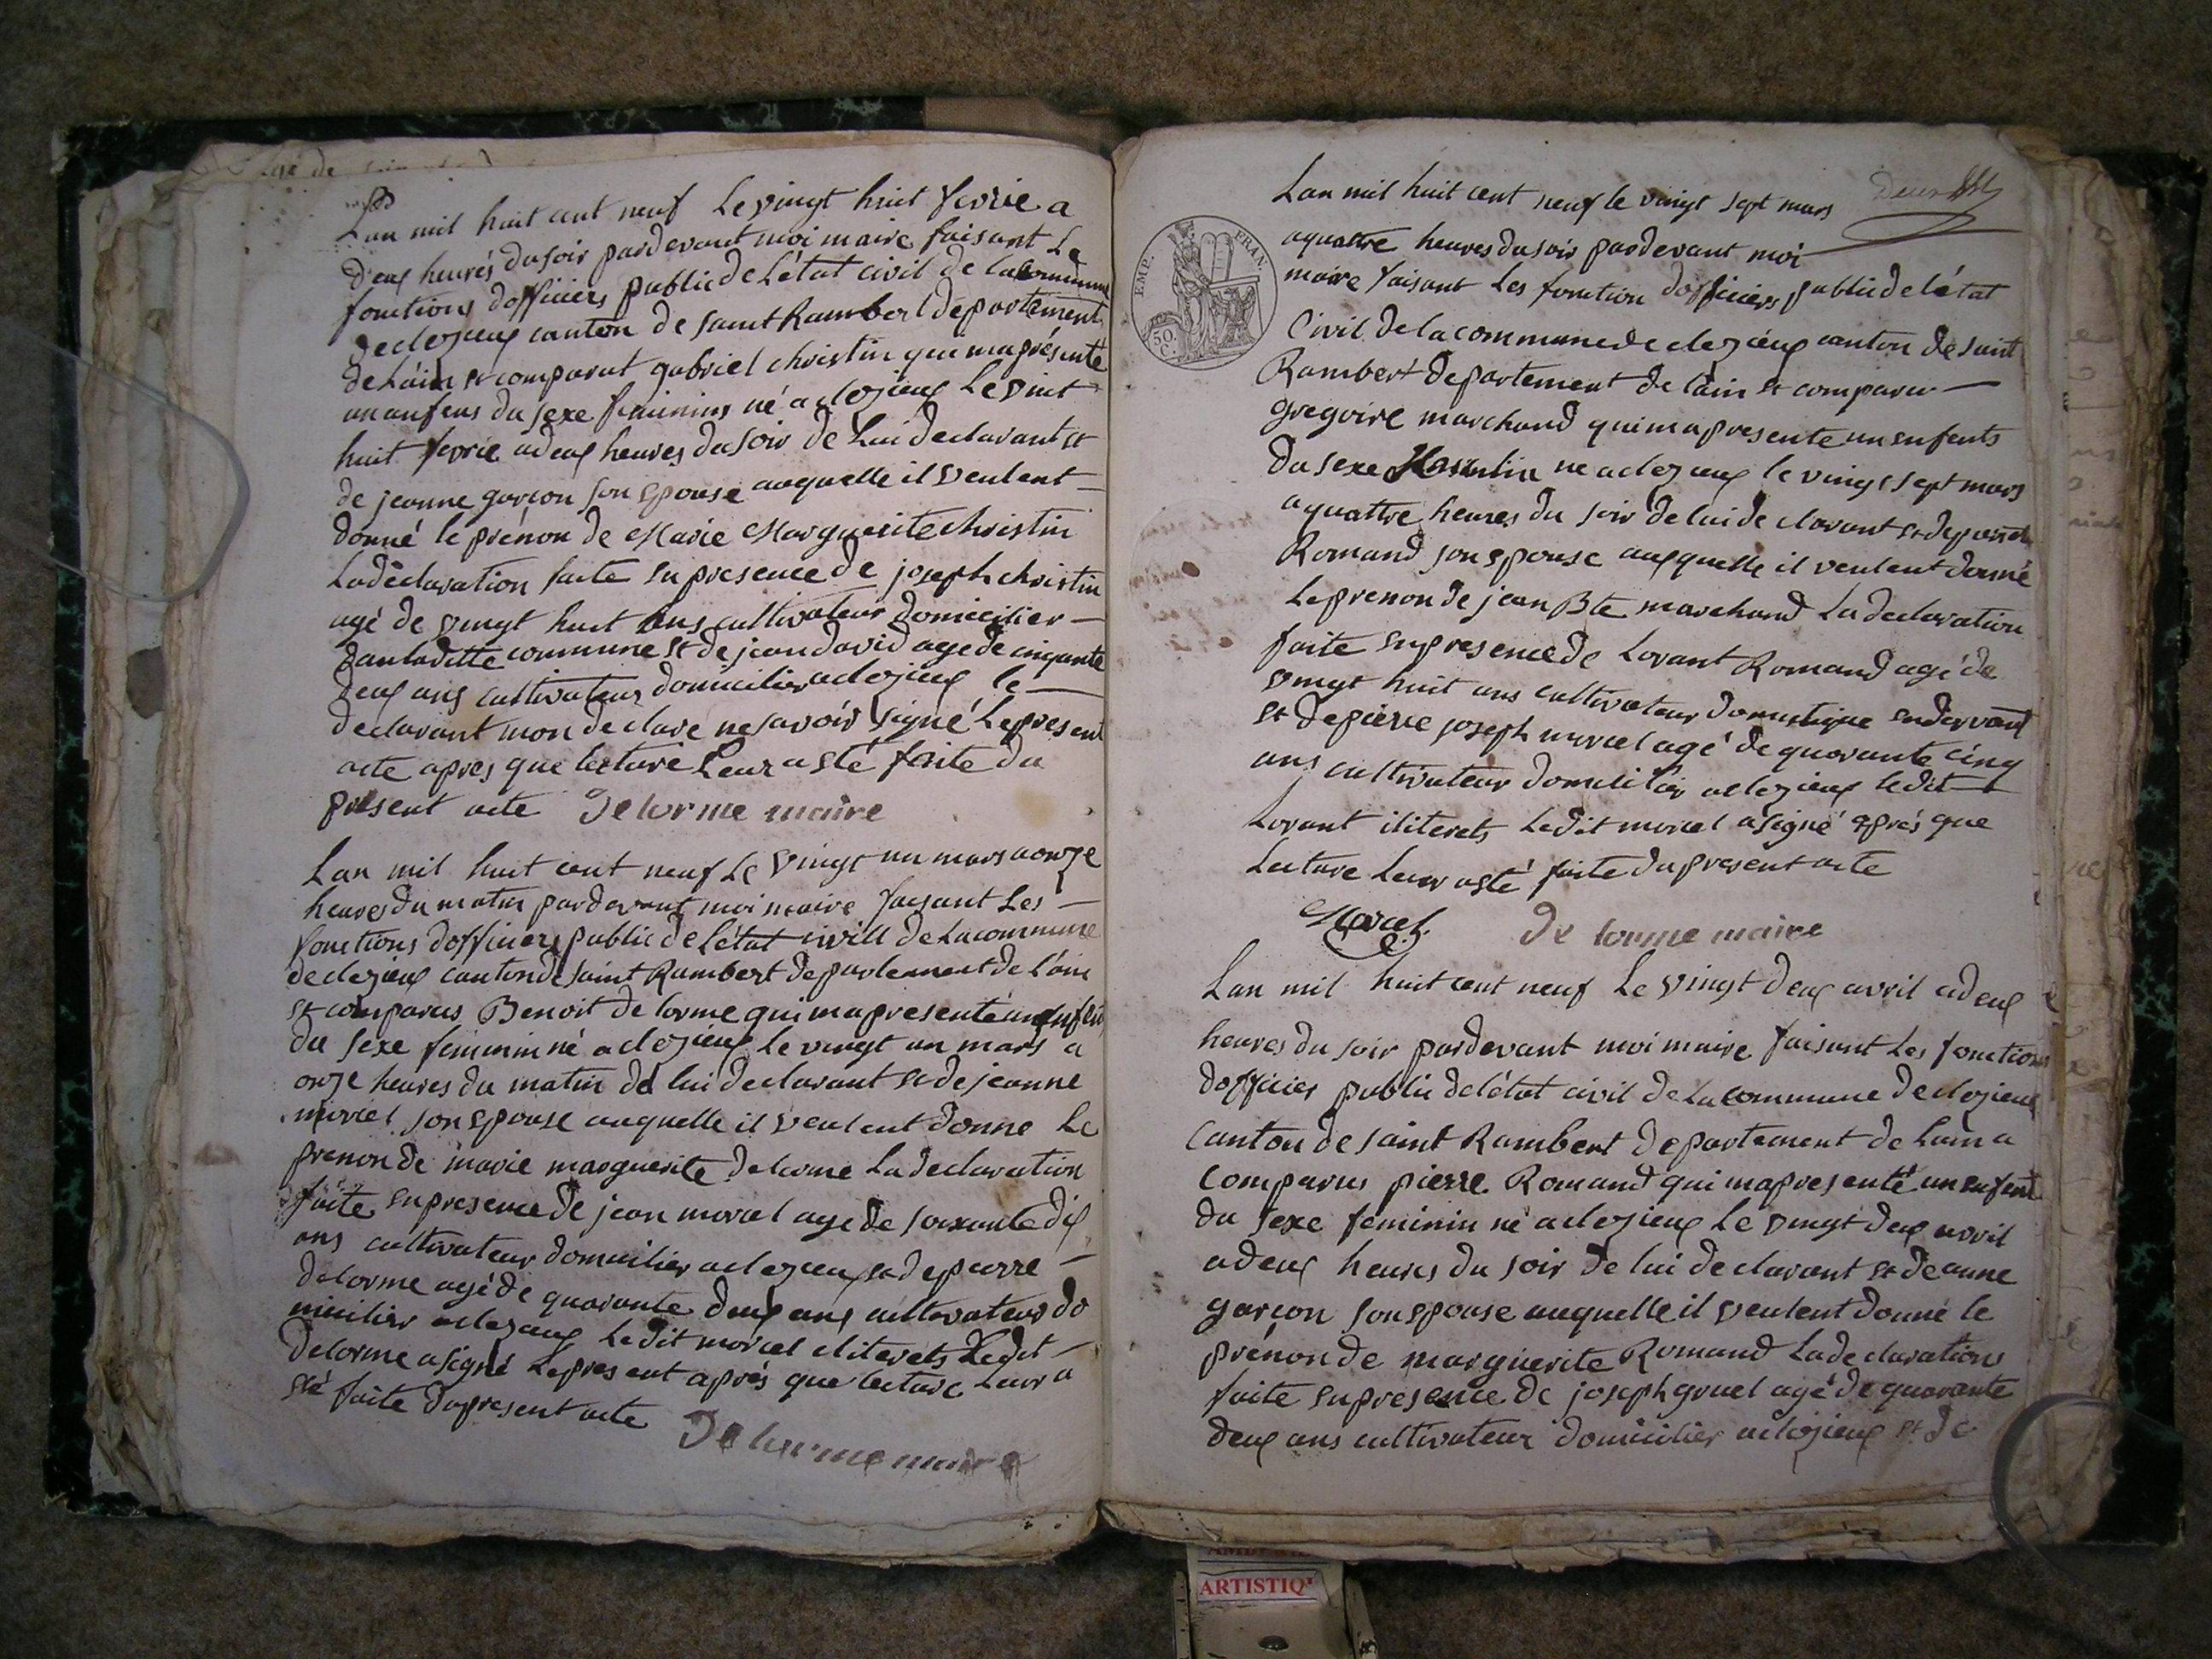 Lan mil huit cent neuf Le vingt huit fevrie a
deux heurés du soir pardevant moi maire faisant Le
fonctions dofficiers public de Létat civil de la Commune
de clezieux canton de saint Rambert departement
de Láin st comparut gabriel christin qui ma présenté
un anfens du sexe feminins né a clezieux Le vint
huit fevrie a deux heures du soir de Lui declarant st
de jeanne garcon son spouse auquelle il veulent
donné le prénon de Marie Marguerite christin
La déclaration faite su presence de joseph christin
agé de vingt huit ans cultivateur domicilier
dan laditte commune st de jean david age de cinquante
deux ans cultivateur domicilier a clezieux le
declarant mon declare ne savoir signé Le present
acte apres que lecture Leur a sté faite du
present acte De lorme maire
Lan mil huit cent neuf Le vingt un mars a onze
heures du matin pardevant moi maire faisant Les
fonctions dofficiers public de Létat civill de La commune
de clezieux canton de saint Rambert departement de Láin
st comparus Benoit de lorme qui ma presenté un
du sexe feminin né a clezieux Le vingt un mars a
onze heures du matin de lui declarant st de jeanne
morel son spouse auquelle il veulent donne Le
prenon de marie marguerite delorme La declaration
faite su presence de jean morel age de soixante dix
ans cultivateur domicilier a clezieux st de pierre
delorme agé de quarante deux ans cultivateur do
micilier a clezieux Le dit morel eliterets Ledit
Delorme a signé Le present aprés que lecture Leur a
sté faite du present acte De lorme maire
Lan mil huit cent neuf le vingt sept mars
EMP. FRAN.
50. C.
a quattre heures du soir pardevant moi
maire faisant Les fonction dofficiers public de létat
Civil de la commune de clezieux canton de saint
Rambert departement de láin st comparu
gregoire marchand qui ma presente un enfents
du sexe Masculin ne a clezieux le vingt sept mars
a quattre heures du soir de lui declarant st de
Romand son spouse auxquelle il veulent donné
Le prenon de jean Bte marchand La declaration
faite su presence de Lorant Romand agé de
vingt huit ans cultivateur domestique
st de pierre joseph morel agé de quarante cinq
ans cultivateur domicilier a clezieux ledit
Lorant iliterets Ledit morel a signé aprés que
Lecture Leur a sté faite du present acte
Morel De lorme maire
Lan mil huit cent neuf Le vingt deux avril a deux
heures du soir pardevant moi maire faisant Les fonctions
dofficier public de létat civil de La commune de clezieux
Canton de saint Rambert departement de Lain a
Comparus pierre Romand qui ma presenté un enfent
du sexe feminin né a clezieux Le vingt deux avril
a deux heures du soir de lui declarant st de anne
garcon son spouse auquelle il veulent donné le
prénon de marguerite Romand La declarations
faite su presence de joseph gruel agé de quarante
deux ans cultivateur domicilier a clezieux st de
ARTISTIQ